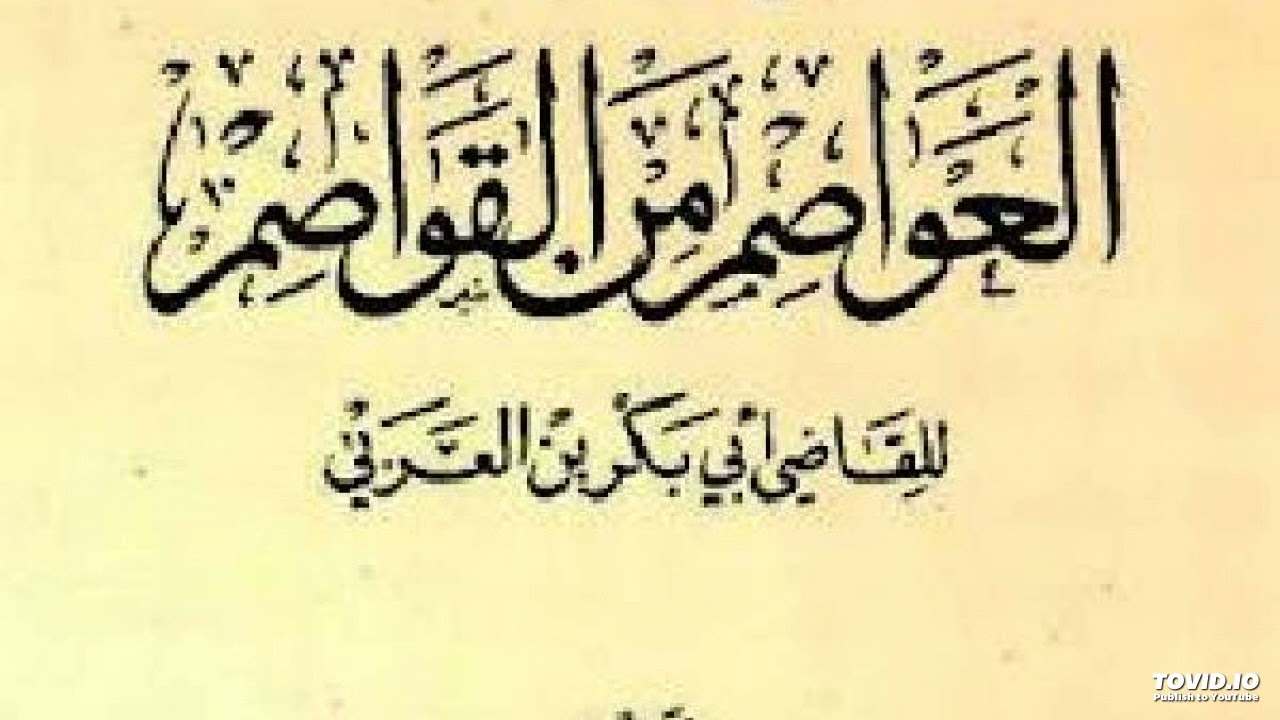 العواصم من القواصم
للقاضي أبي بكر بن العربي
TOVID.IO
Publish to YouTube